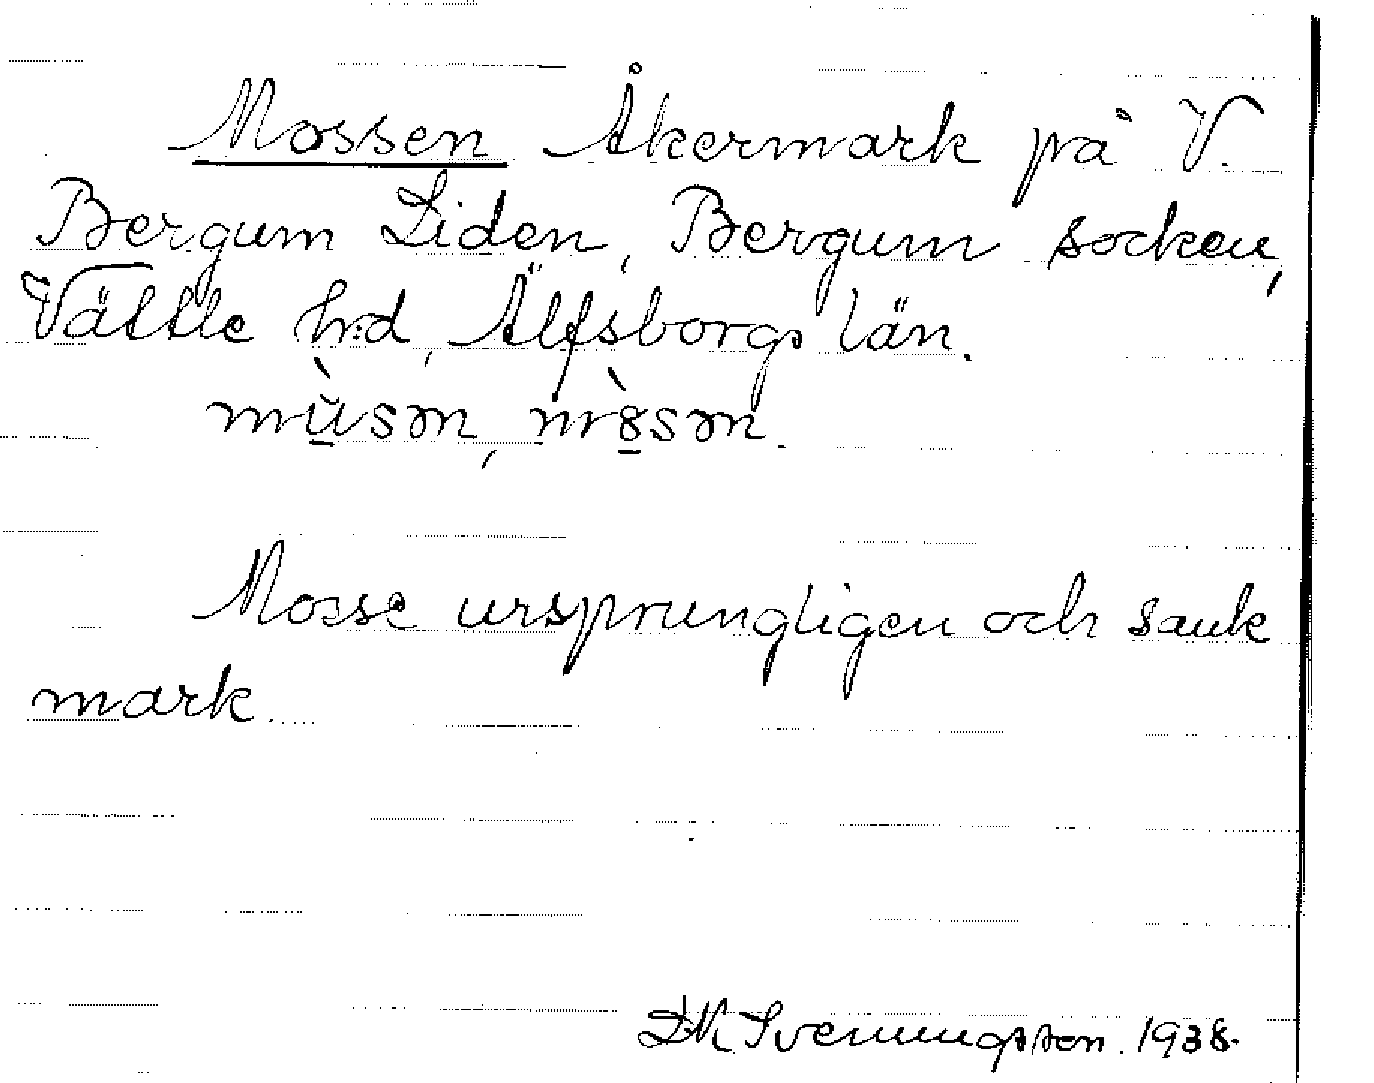 Mossen Åkermark på V.
Bergum Liden, Bergum socken,
Vättle h:d, Älfsborgs län.
mùsən, mòsən.
Mosse ursprungligen och sank
mark.
Svenningsson. 1938.